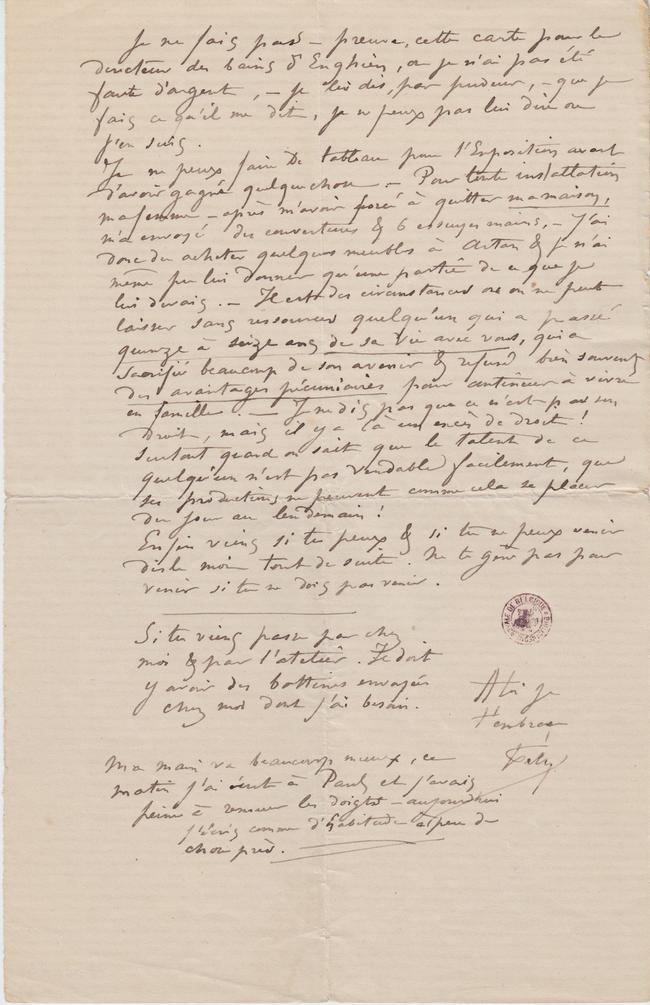 Je ne fais pas – preuve, cette carte pour le
directeur des bains d'Enghien, où je n'ai pas été
faute d'argent, – je lui dis, par pudeur, – que je
fais ce qu'il me dit, je ne peux pas lui dire où
j'en suis.
Je ne peux faire de tableau pour l'Exposition avant
d'avoir gagné quelque chose. – Pour toute installation
ma femme – après m'avoir forcé à quitter ma maison,
m'a envoyé des couvertures & 6 essuye mains, – J'ai
donc du acheter quelques meubles à Artan & je n'ai
même pu lui donner qu'une partie de ce que je
lui devais. – Il est des circonstances où on ne peut
laisser sans ressources quelqu'un qui a passé
quinze à seize ans de sa vie avec vous, qui a
sacrifié beaucoup de son avenir & refusé bien souvent
des avantages pécuniaires pour continuer à vivre
en famille. – Je ne dis pas que ce n'est pas son
droit, mais il y a là un excès de droit!
Surtout quand on sait que le talent de ce
quelqu'un n'est pas vendable facilement, que
ses productions ne peuvent comme cela se placer
du jour au lendemain!
Enfin viens si tu peux & si tu ne peux venir
dis le moi tout de suite. Ne te gêne pas pour
venir si tu ne dois pas venir.
Si tu viens passe par chez
moi & par l'atelier. Il doit
y avoir des bottines envoyées
chez moi dont j'ai besoin.
A toi je
t'embrasse
Fély
Ma main va beaucoup mieux, ce
matin j'ai écrit à Paul et j'avais
peine à remuer les doigts – aujourdhui
j'écris comme d'habitude à peu de
chose près.